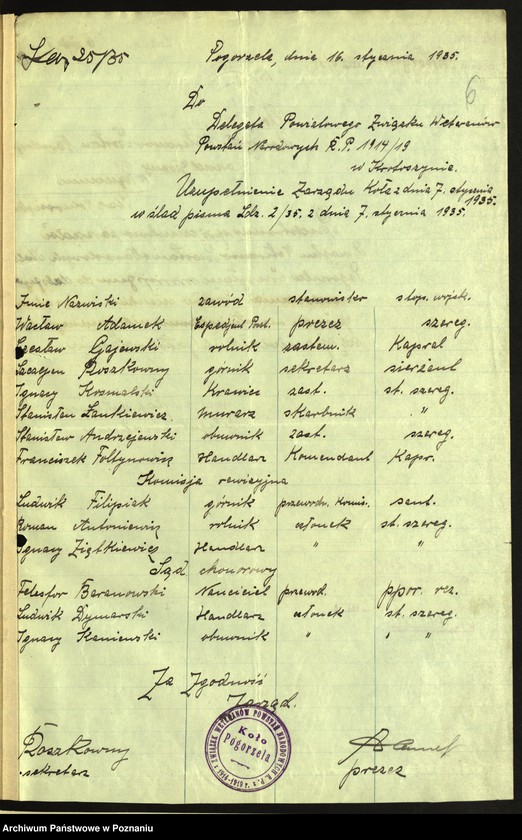 Ldz. 25/35 Pogorzela, dnia 16. stycznia 1935.
6
Do
Delegata Powiatowego Związku Weteranów
Powstań Narodowych R.P. 1914/19
w Krotoszynie.
Uzupełnienie Zarządu Koła z dnia 7. stycznia
1935.
w ślad pisma Ldz. 2/35. z dnia 7. stycznia 1935.
Imię Nazwiski zawód stanowisko stop. wojsk.
Wacław Adamek Espedjent Poczt. prezez szereg.
Czesław Gajewski rolnik zastem. Kapral
Roszkowny górnik sekretarz sierżant
Ignacy Kosmalski Krawiec zast. st. szereg.
Stanisław Lankiewicz murarz skarbnik "
Stanisław Andrzejewski obuwnik zast. szereg.
Franciszek Foltynowicz Handlarz Komendant Kapr.
Komisja rewizyjna
Ludwik Filipiak górnik przewodn. Komis. sant.
Roman Antoniewicz rolnik członek st. szereg.
Ignacy Ziętkiewicz Handlarz " "
Sąd chonorowy
Telesfor Baranowski Nauciciel przewod. ppor. rez.
Ludwik Dymarski Handlarz członek st. szereg.
Ignacy Kaniewski obuwnik " " "
Za Zgodność
Zarząd.
ZWIĄZEK WETERANÓW POWSTAŃ NARODOWYCH R.P. 1914-1919
Koło
Pogorzela
Roszkowny
sekretarz
Adamek
prezez
Archiwum Państwowe w Poznaniu